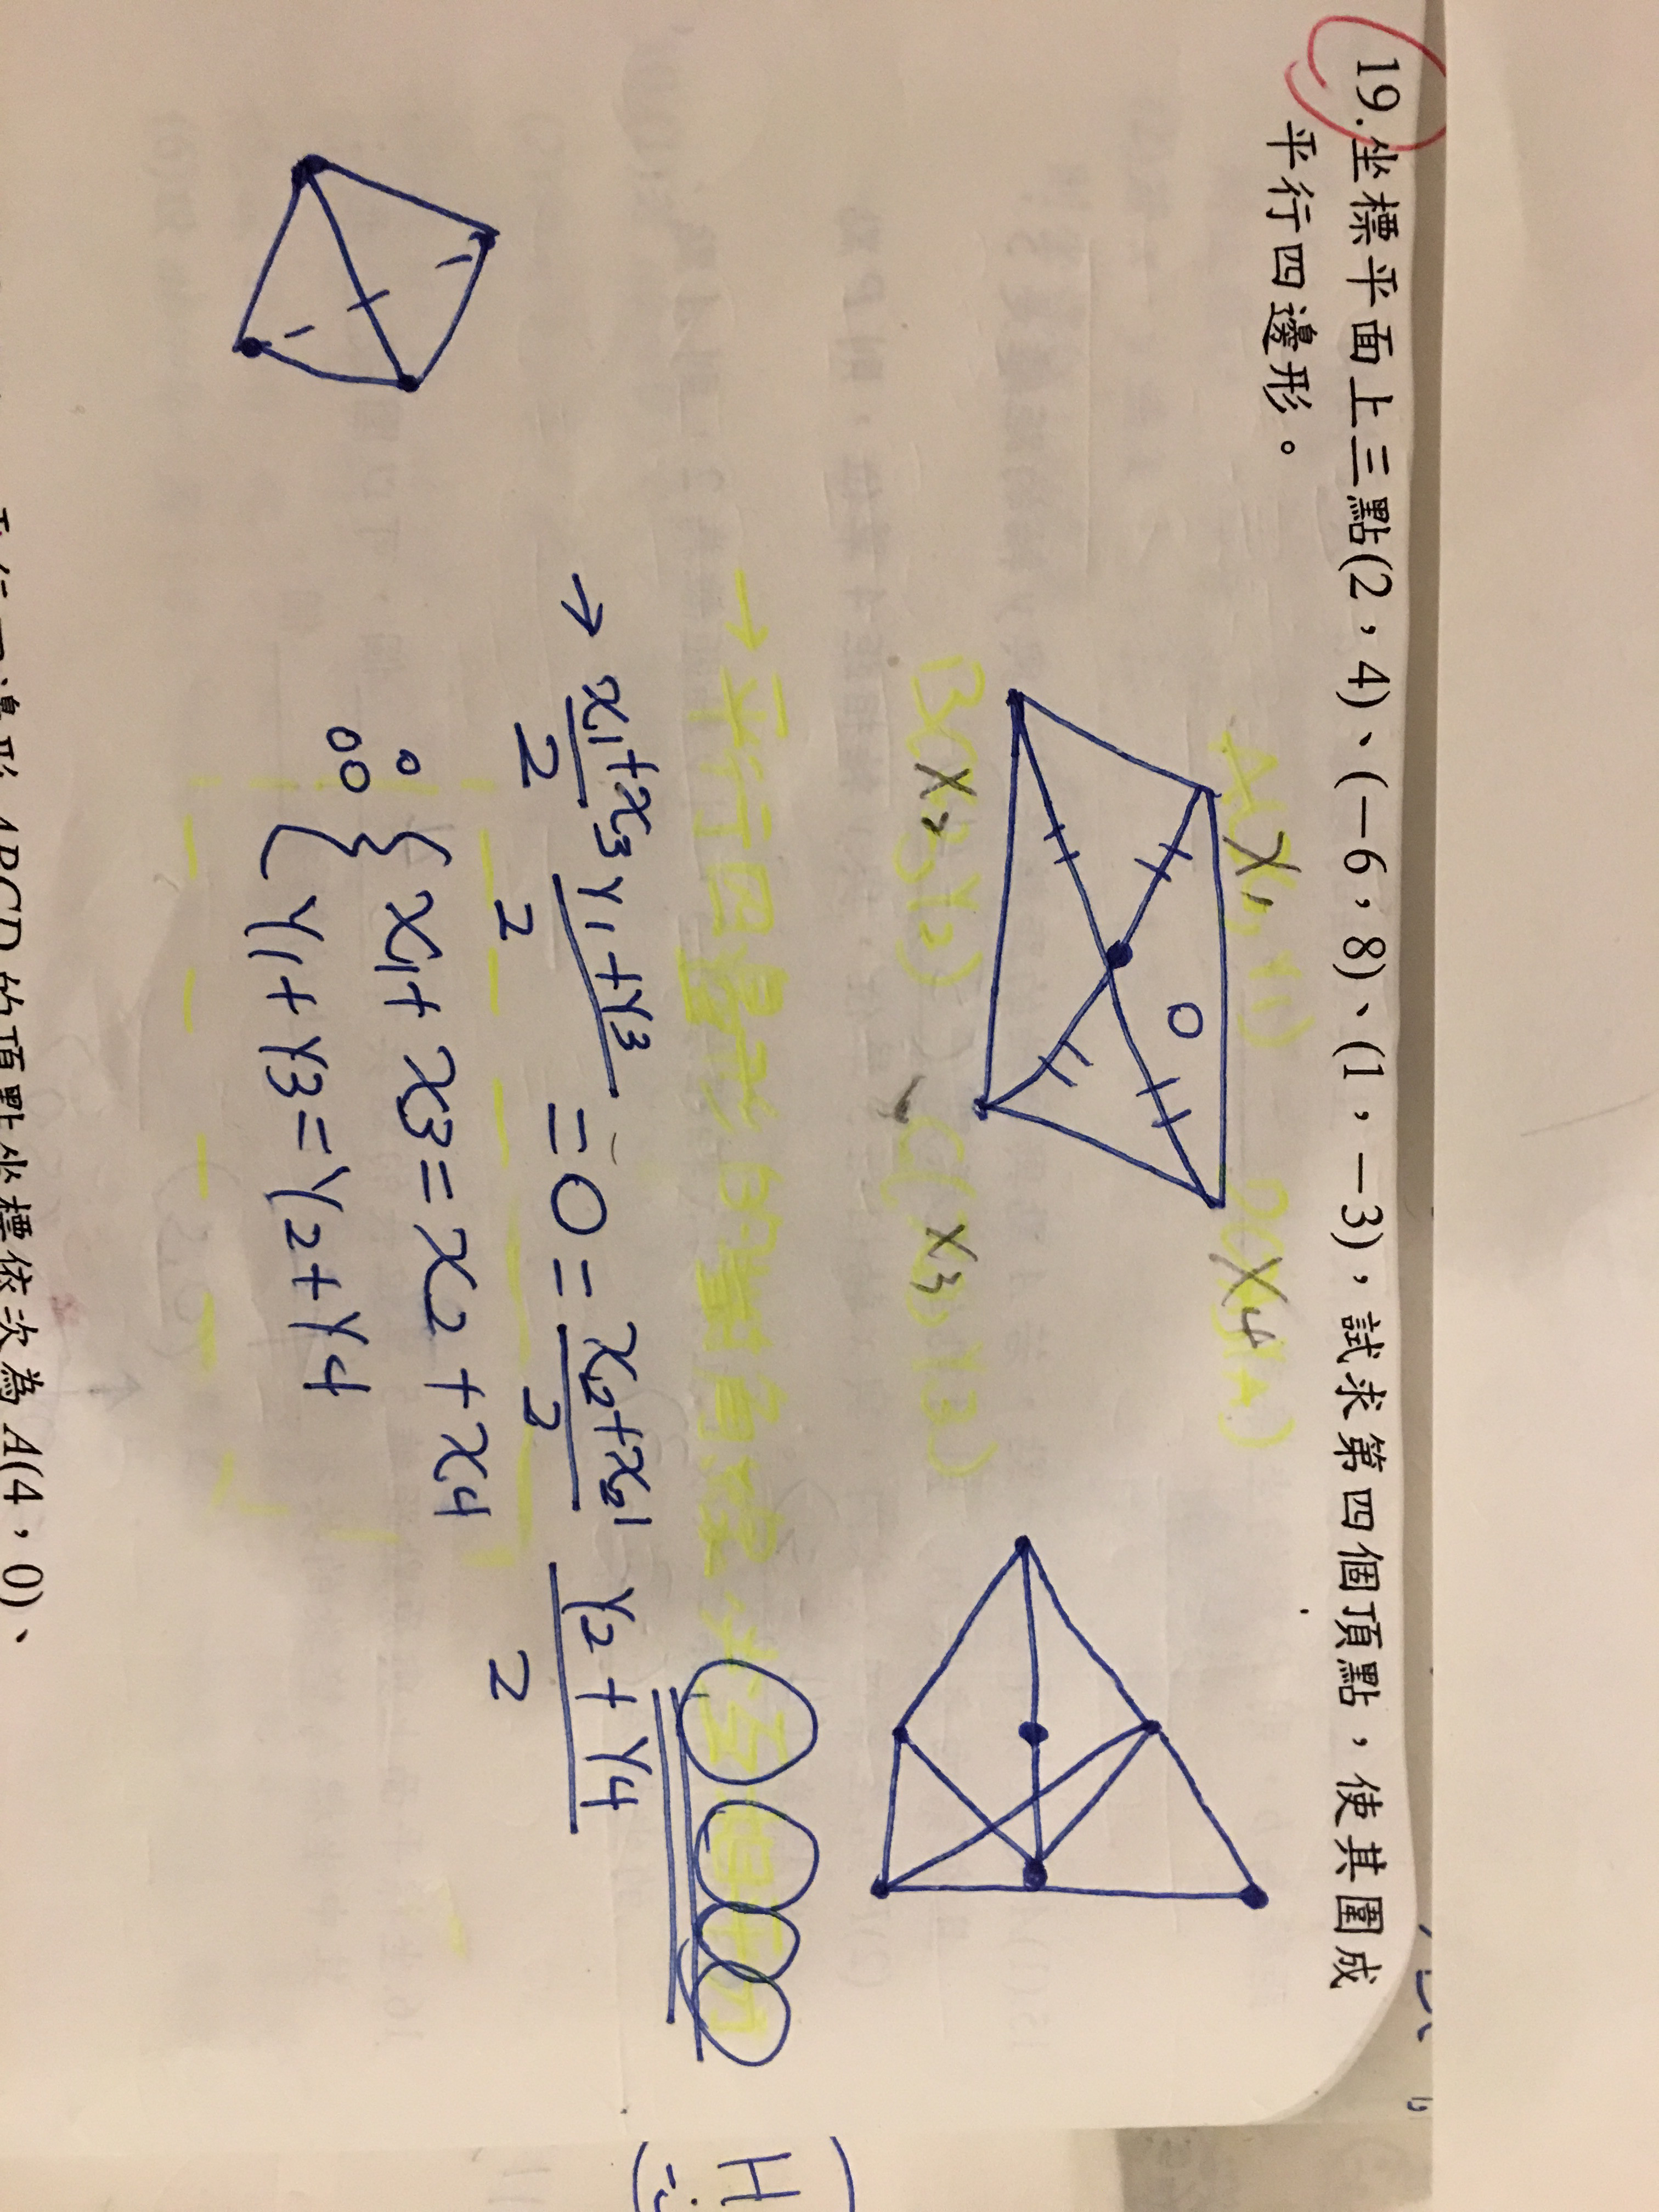 19.坐標平面上三點(2,4)、(−6,8)、(1,−3),試求第四個頂點,使其圍成
平行四邊形。
A(x1,y1)
D(x4,y4)
O
B(x2,y2)
C(x3,y3)
→平行四邊形的對角線
→ x1+x3/2 y1+y3/2 = O = x2+x4/2 y2+y4/2
x1+x3=x2+x4
y1+y3=y2+y4
ABCD的頂點坐標依次為A(4,0)、
H